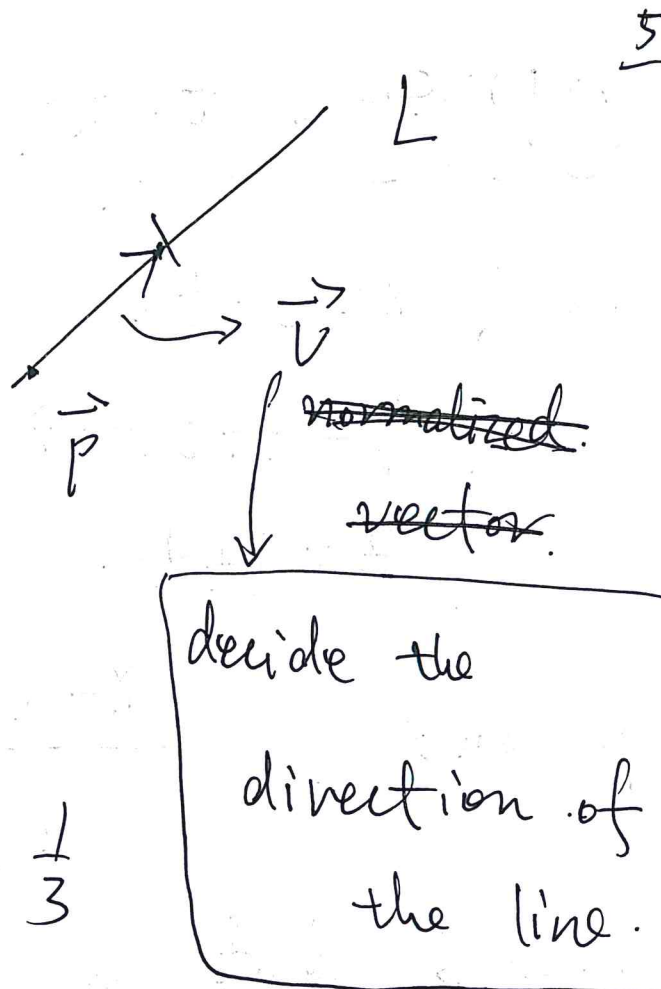 5
L
→
V
→
P
normalized.
vector.
decide the
direction of
the line.
1
3